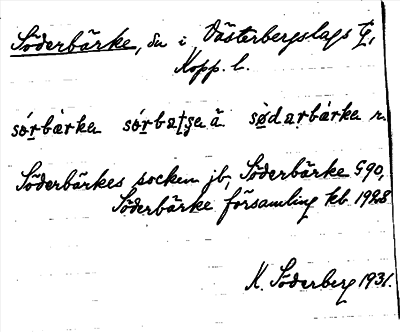 Söderbärke, sn i Västerbergslags tg,
Kopp. l.
sórbàrka sórbaʈʂeå sødarbárka n.
Söderbärkes socken jb, Söderbärke G90,
Söderbärke församling kb 1928
K. Söderberg 1931.